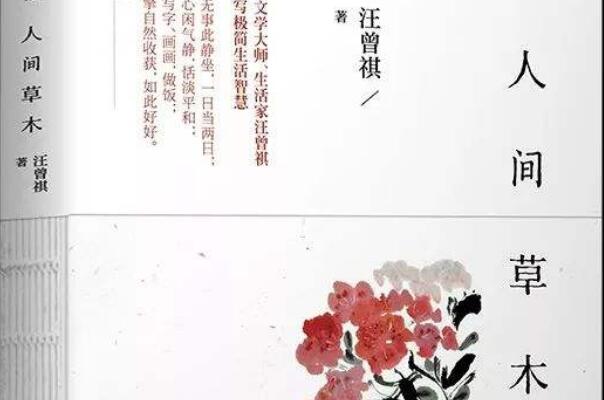 人间草木
汪曾祺
著
汪曾祺
著
文学大师、生活家汪曾祺
写极简生活智慧
无事此静坐,一日当两日;
心闲气静,恬淡平和;
写字、画画、做饭;
自然收获,如此好好。
人间草木
汪曾祺
著